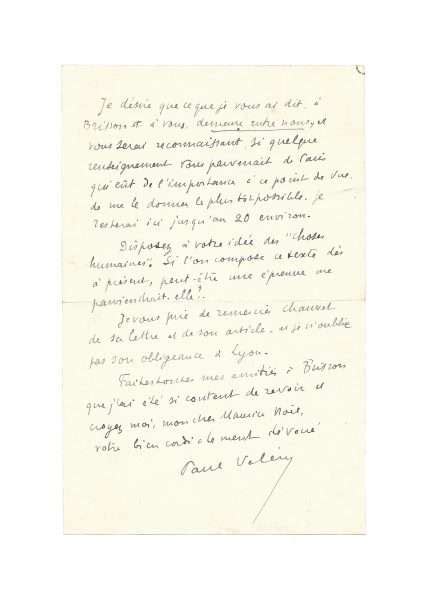 Je désire que ce que je vous ai dit, à
Brisson et à vous, demeure entre nous, et
vous serai reconnaissant, si quelque
renseignement vous parvenait de Paris
qui eût de l'importance à ce point de vue,
de me le donner le plus tôt possible. Je
resterai ici jusqu'au 20 environ.
Disposez à votre idée des "Choses
humaines". Si l'on compose ce texte dès
à présent, peut-être une épreuve me
parviendrait-elle?
Je vous prie de remercier Chauvet
de sa lettre et de son article. et je n'oublie
pas son obligeance à Lyon.
Faites toutes mes amitiés à Brisson
que j'ai été si content de revoir et
croyez moi, mon cher Maurice Noël,
votre bien cordialement dévoué
Paul Valéry